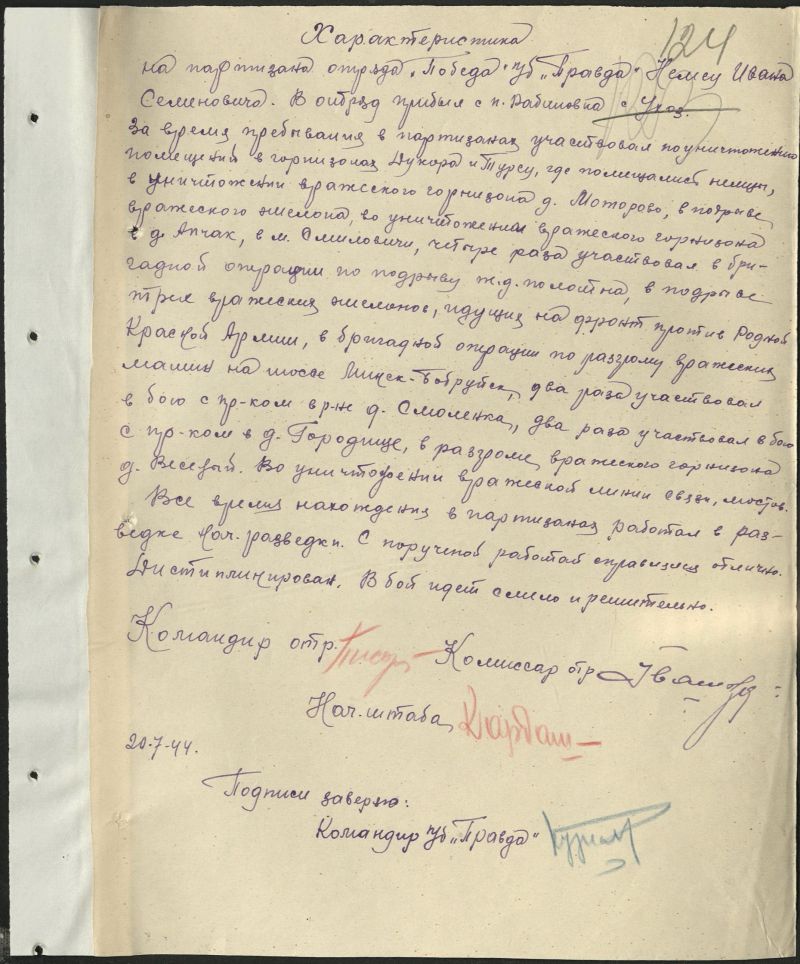 124
Характеристика
на партизана отряда „Победа“ п/б „Правда“ Немсу Ивана
Семеновича. В отряд прибыл с п.
За время пребывания в партизанах участвовал по уничтожению
помещений в горнизонах Дукора и Турец, где помещались немцы,
в уничтожении вражеского горнизона д. Моторово, в подрыве
вражеского эшелона, во уничтожении вражеского горнизона
в д. Апчак, в м. Смиловичи, четыре раза участвовал в бри-
гадной операции по подрыву ж.д. полотна, в подрыве
трех вражеских эшелонов, идущих на фронт против Родной
Красной Армии, в бригадной операции по разгрому вражеских
машин на шоссе Минск-Бобруйск, два раза участвовал
в бою с пр-ком в р-не д. Смоленка, два раза участвовал в бою
с пр-ком в д. Городище, в разгроме вражеского горнизона
д. Веселый. Во уничтожении вражеской линии связи, мостов.
Все время нахождения в партизанах работал в раз-
ведке нач. разведки. С порученой работой справлялся отлично.
Дистиплинирован. В бой идет смело и решительно.
Командир отр. Комиссар отр. Иванов
Нач. штаба Кардаш
20-7-44.
Подписи заверяю:
Командир п/б „Правда“